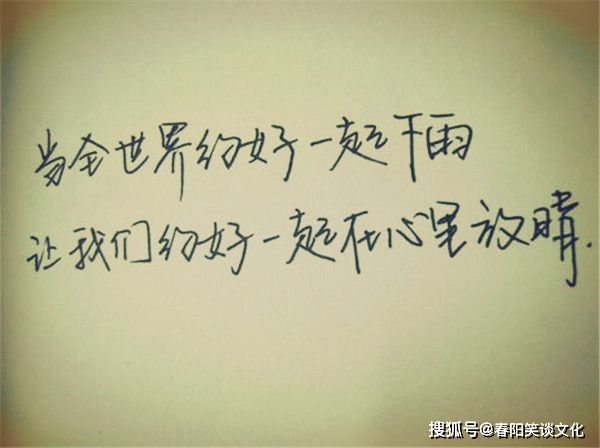 当全世界约好一起下雨
让我们约好一起在心里放晴.
搜狐号@春阳笑谈文化